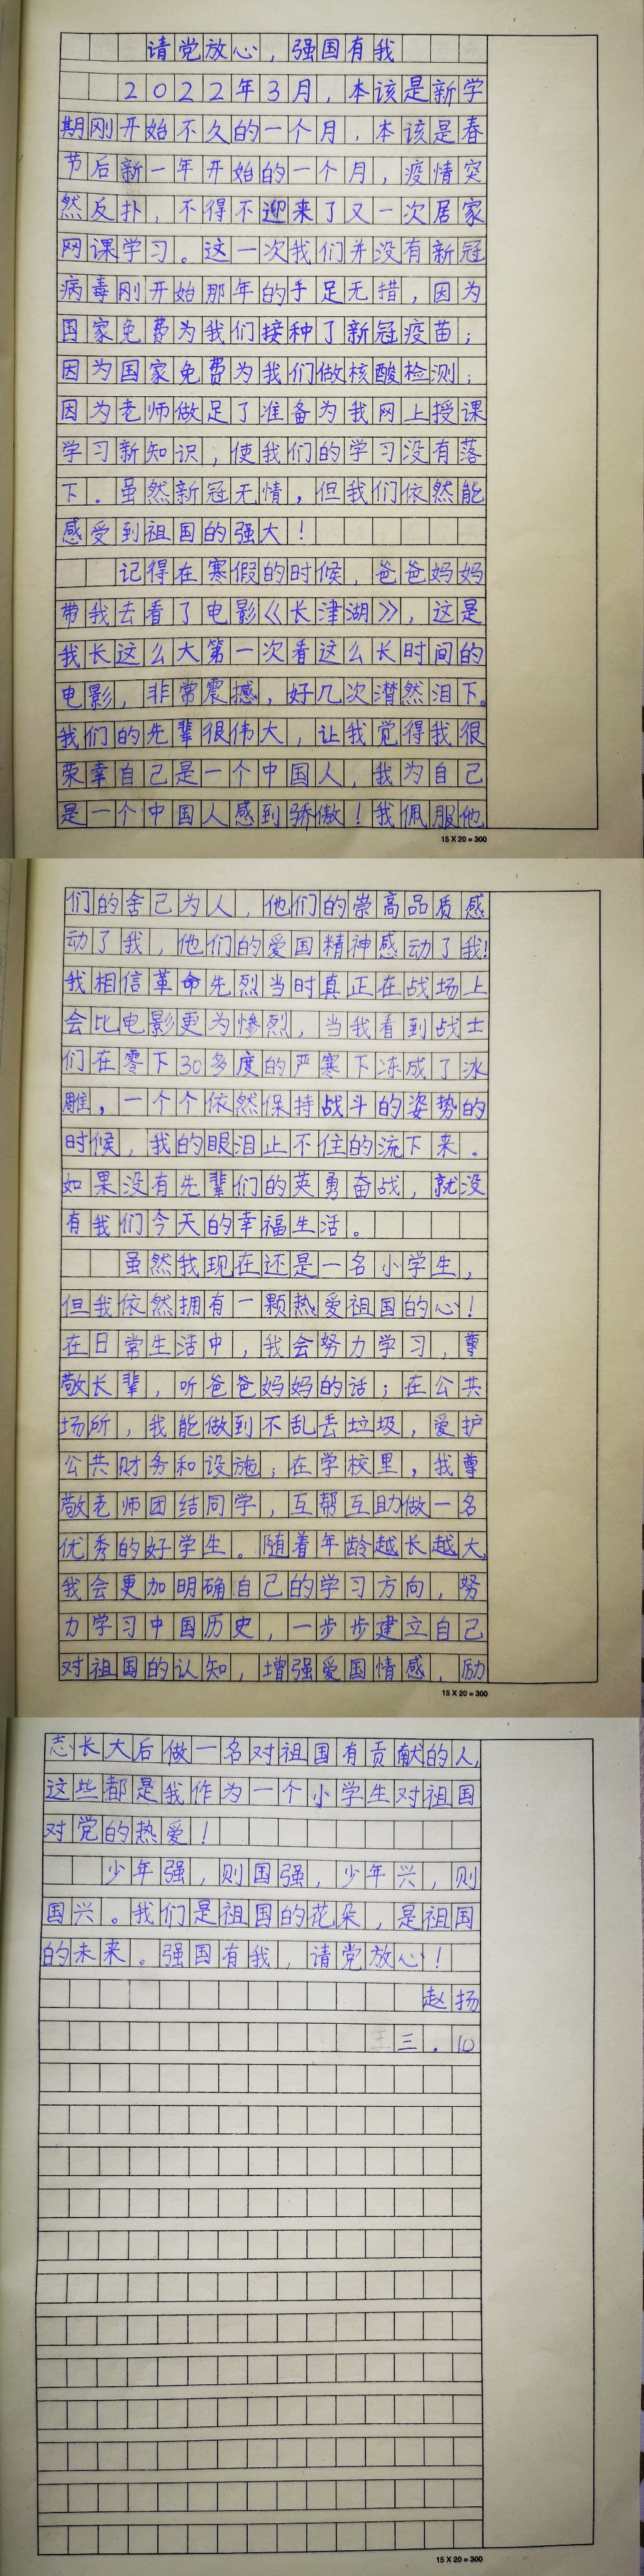 请党放心，强国有我
2022年3月，本该是新学
期刚开始不久的一个月，本该是春
节后新一年开始的一个月，疫情突
然反扑，不得不迎来了又一次居家
网课学习。这一次我们并没有新冠
病毒刚开始那年的手足无措，因为
国家免费为我们接种了新冠疫苗；
因为国家免费为我们做核酸检测；
因为老师做足了准备为我网上授课
学习新知识，使我们的学习没有落
下。虽然新冠无情，但我们依然能
感受到祖国的强大！
记得在寒假的时候，爸爸妈妈
带我去看了电影《长津湖》，这是
我长这么大第一次看这么长时间的
电影，非常震撼，好几次潸然泪下。
我们的先辈很伟大，让我觉得我很
荣幸自己是一个中国人，我为自己
是一个中国人感到骄傲！我佩服他
15 X 20 = 300
们的舍己为人，他们的崇高品质感
动了我，他们的爱国精神感动了我！
我相信革命先烈当时真正在战场上
会比电影更为惨烈，当我看到战士
们在零下30多度的严寒下冻成了冰
雕，一个个依然保持战斗的姿势的
时候，我的眼泪止不住的流下来。
如果没有先辈们的英勇奋战，就没
有我们今天的幸福生活。
虽然我现在还是一名小学生，
但我依然拥有一颗热爱祖国的心！
在日常生活中，我会努力学习，尊
敬长辈，听爸爸妈妈的话；在公共
场所，我能做到不乱丢垃圾，爱护
公共财务和设施；在学校里，我尊
敬老师团结同学，互帮互助做一名
优秀的好学生。随着年龄越长越大，
我会更加明确自己的学习方向，努
力学习中国历史，一步步建立自己
对祖国的认知，增强爱国情感，励
15 X 20 = 300
志长大后做一名对祖国有贡献的人，
这些都是我作为一个小学生对祖国
对党的热爱！
少年强，则国强，少年兴，则
国兴。我们是祖国的花朵，是祖国
的未来。强国有我，请党放心！
赵扬
三．10
15 X 20 = 300